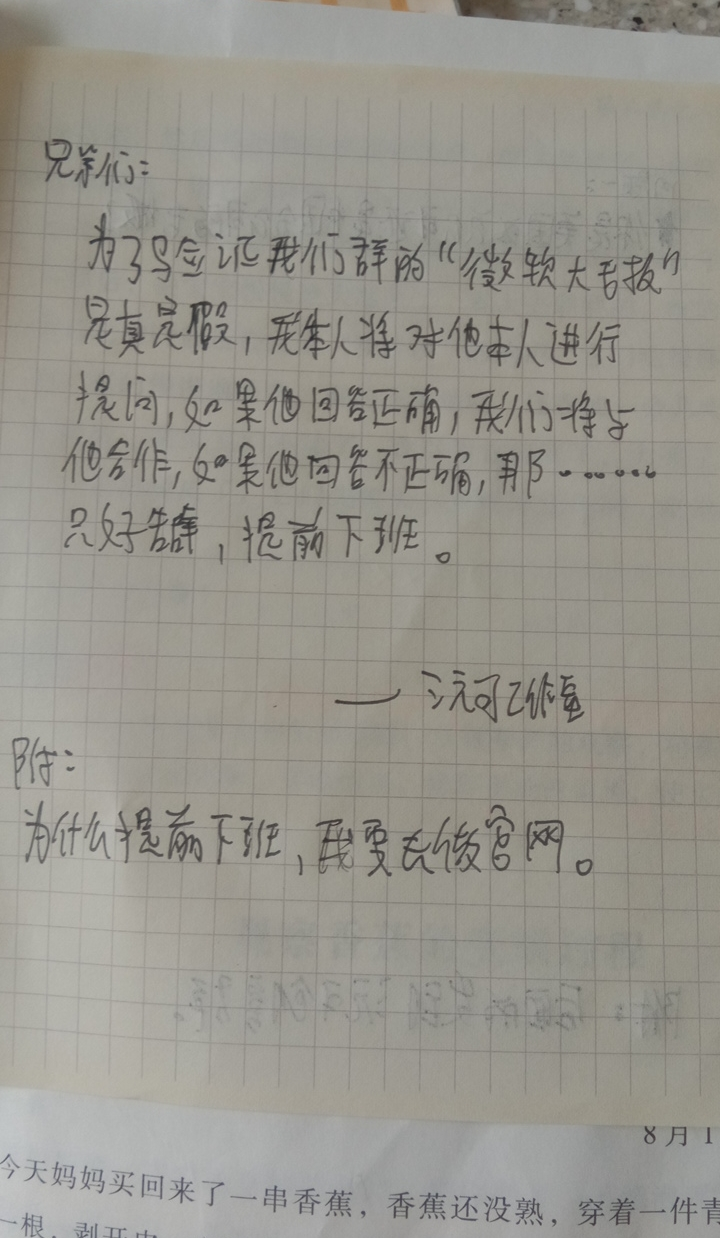 兄弟们：
为了验证我们群的“微软大老板”
是真是假，我本人将对他本人进行
提问，如果他回答正确，我们将与
他合作，如果他回答不正确，那……
只好告辞，提前下班。
——沅河工作室
附：
为什么提前下班，我要去做官网。
8月1
今天妈妈买回来了一串香蕉，香蕉还没熟，穿着一件青
一根，剥开